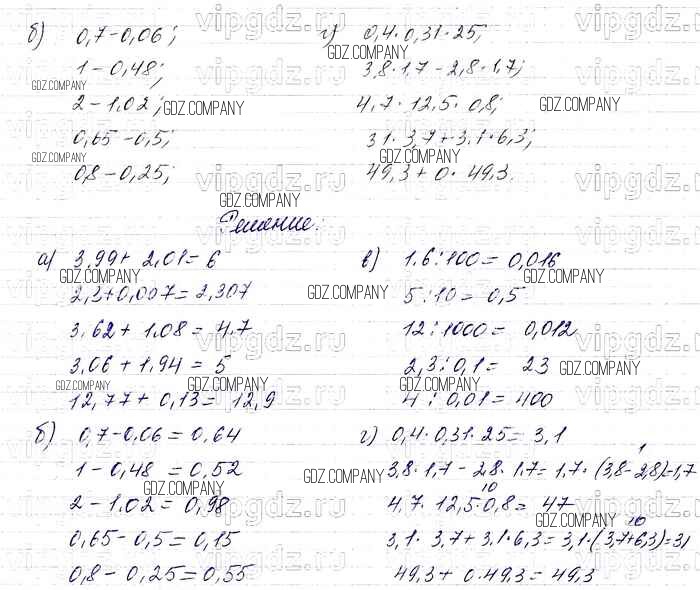 б) 0,7-0,06;
1-0,48;
2-1,02;
0,65-0,5;
0,8-0,25;
г) 0,4·0,31·25;
3,8·1,7-2,8·1,7;
4,7·12,5·0,8;
3,1·3,7+3,1·6,3;
49,3+0·49,3.
Решение:
а) 3,99+2,01=6
2,3+0,007=2,307
3,62+1,08=4,7
3,06+1,94=5
12,77+0,13=12,9
в) 1,6:100=0,016
5:10=0,5
12:1000=0,012
2,3:0,1=23
4:0,01=400
б) 0,7-0,06=0,64
1-0,48=0,52
2-1,02=0,98
0,65-0,5=0,15
0,8-0,25=0,55
г) 0,4·0,31·25=3,1
1
3,8·1,7-2,8·1,7=1,7·(3,8-2,8)=1,7
10
4,7·12,5·0,8=47
10
3,1·3,7+3,1·6,3=3,1·(3,7+6,3)=31
49,3+0·49,3=49,3
GDZ.COMPANY
vipgdz.ru